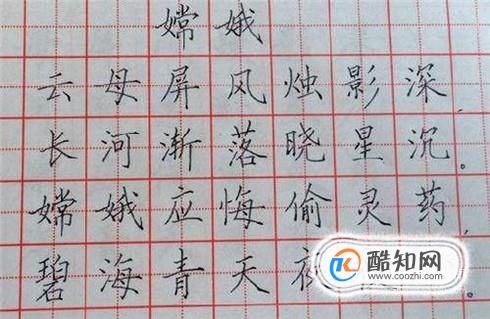 嫦娥
云母屏风烛影深，
长河渐落晓星沉。
嫦娥应悔偷灵药，
碧海青天夜。
酷知网
www.coozhi.com